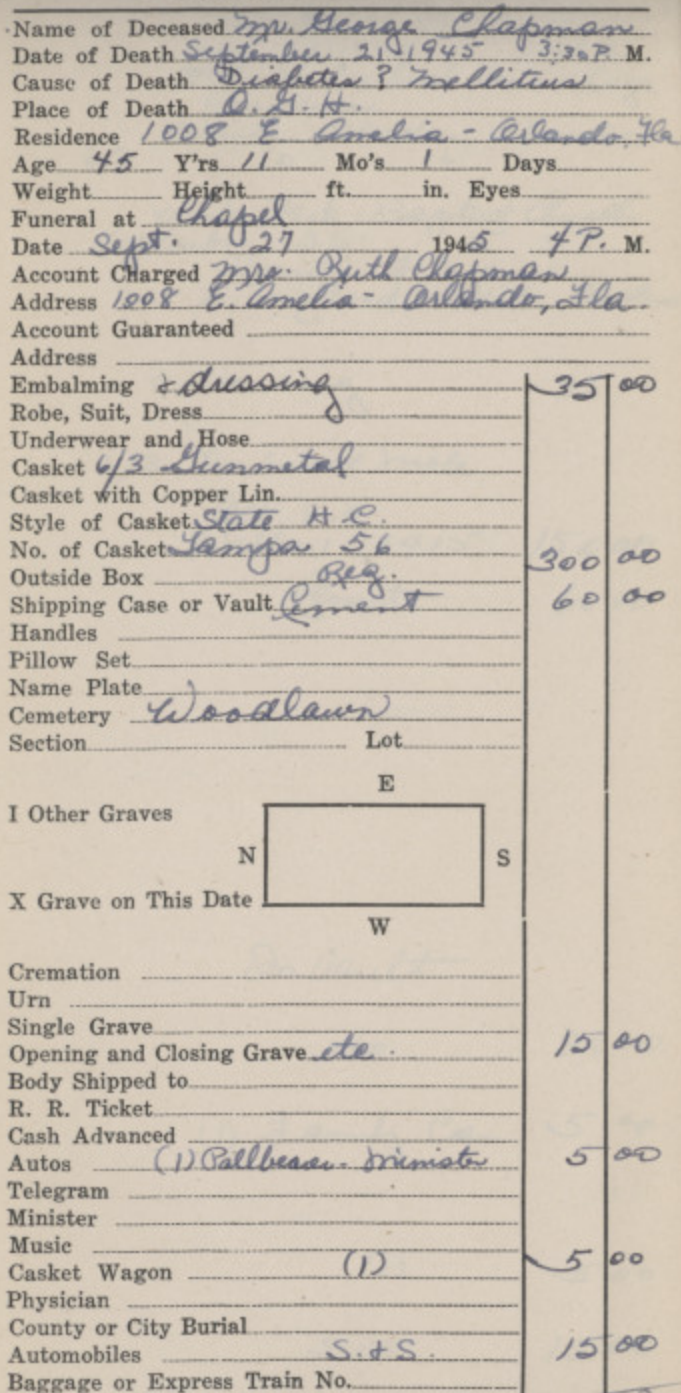 Name of Deceased Mr. George Chapman
Date of Death September 21 1945 3:30 P. M.
Cause of Death Diabetes ? Mellitius
Place of Death O. G. H.
Residence 1008 E Amelia - Orlando, Fla
Age 45 Y'rs 11 Mo's 1 Days
Weight Height ft. in. Eyes
Funeral at Chapel
Date Sept. 27 1945 4 P. M.
Account Charged Mrs. Ruth Chapman
Address 1008 E. Amelia - Orlando, Fla.
Account Guaranteed
Address
Embalming & dressing 35 00
Robe, Suit, Dress
Underwear and Hose
Casket 6/3 Gunmetal
Casket with Copper Lin.
Style of Casket State H. C.
No. of Casket Tampa 56 300 00
Outside Box Reg.
Shipping Case or Vault Cement 60 00
Handles
Pillow Set
Name Plate
Cemetery Woodlawn
Section Lot
E
I Other Graves
N S
X Grave on This Date
W
Cremation
Urn
Single Grave
Opening and Closing Grave etc. 15 00
Body Shipped to
R. R. Ticket
Cash Advanced
Autos (1) Pallbearer - Minister 5 00
Telegram
Minister
Music
Casket Wagon (1) 5 00
Physician
County or City Burial
Automobiles S. & S. 15 00
Baggage or Express Train No.